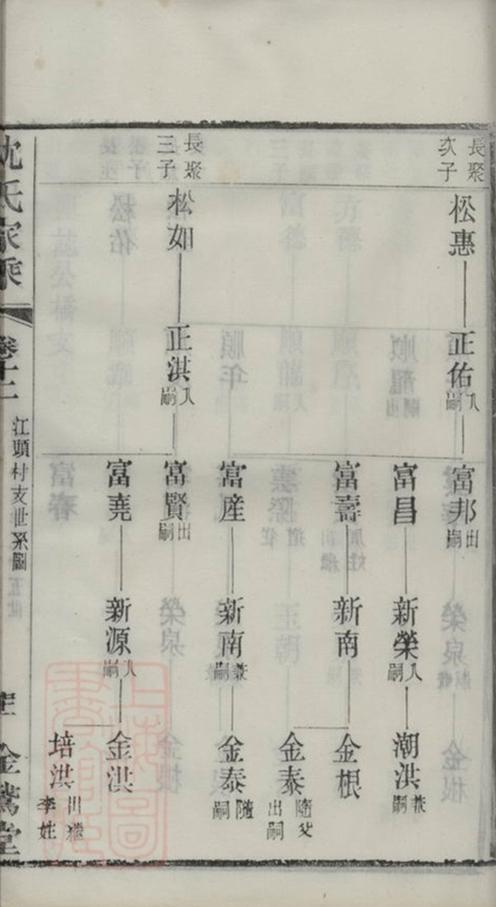 長聚
次子
松惠
正佑入嗣
富邦出嗣
富昌
新榮入嗣
潮洪兼嗣
富壽
新南
金根
金泰隨父出嗣
富產
新南兼嗣
金泰隨嗣
長聚
三子
松如
正淇入嗣
富賢出嗣
富堯
新源入嗣
金洪
培洪出繼李姓
沈氏家乘
卷十二
江頭村支世系圖
金鵞堂